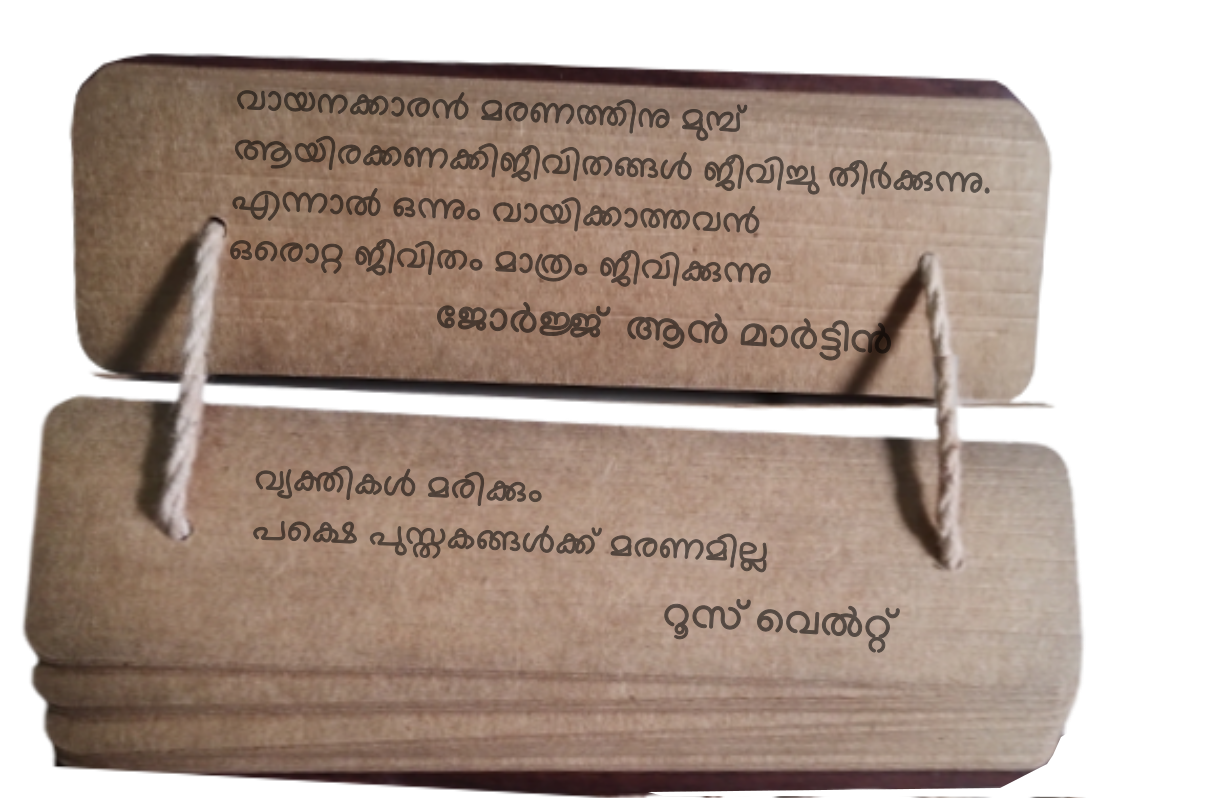 വായനക്കാരൻ മരണത്തിനു മുമ്പ്
ആയിരക്കണക്കിജീവിതങ്ങൾ ജീവിച്ചു തീർക്കുന്നു.
എന്നാൽ ഒന്നും വായിക്കാത്തവൻ
ഒരൊറ്റ ജീവിതം മാത്രം ജീവിക്കുന്നു
ജോർജ്ജ് ആൻ മാർട്ടിൻ
വ്യക്തികൾ മരിക്കും
പക്ഷെ പുസ്തകങ്ങൾക്ക് മരണമില്ല
റൂസ് വെൽറ്റ്